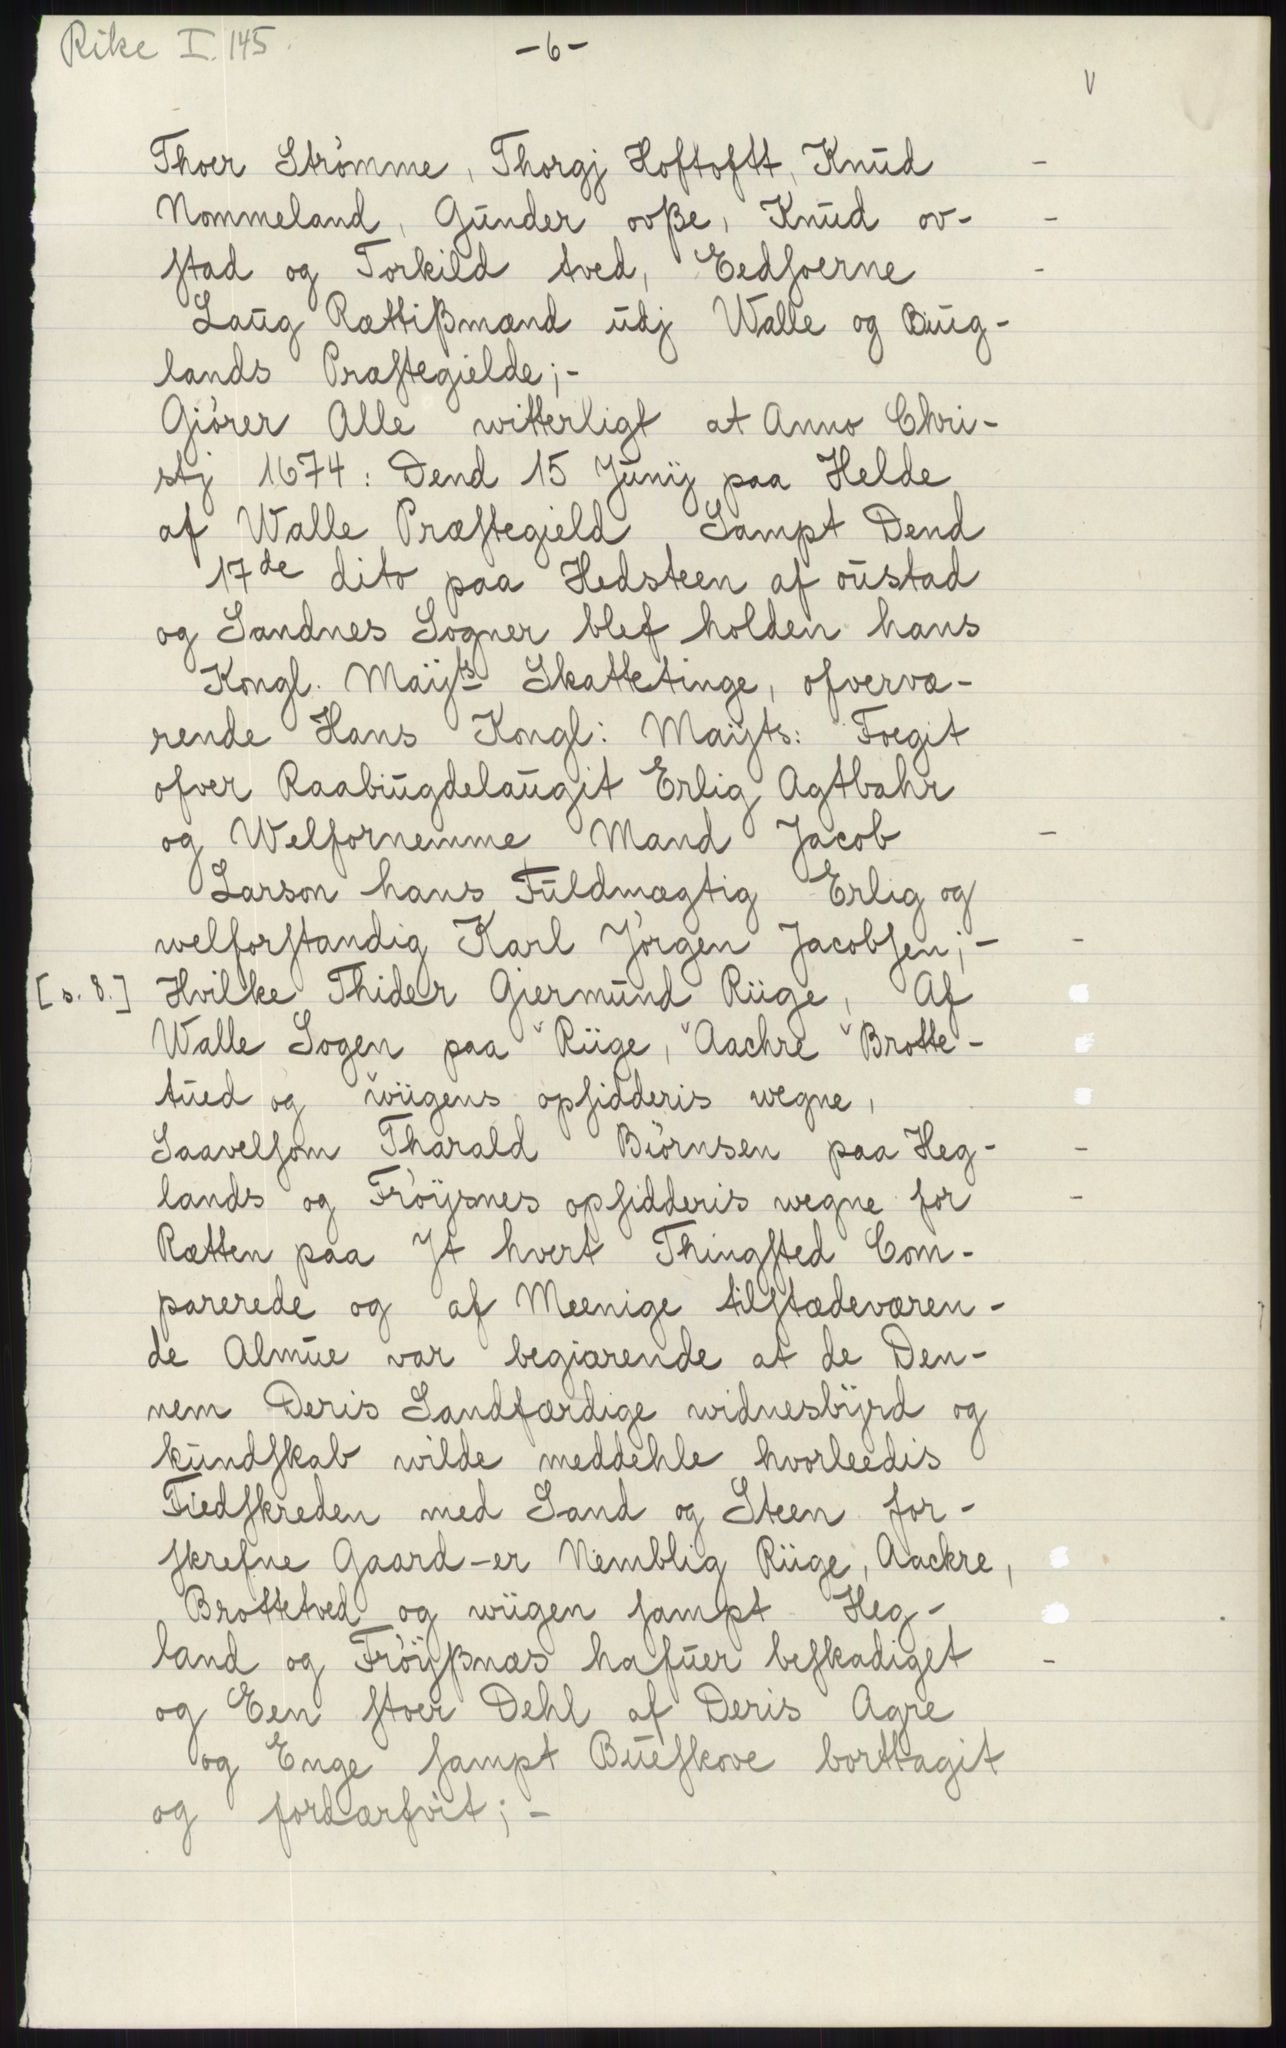 Rike I. 145
-6-
V
Thoer Strömme, Thorgj Hoftoftt, Knud -
Nommeland, Gunder ovße, Knud ov- -
stad og Torkild tved, Eedsoerne -
Laug Rættißmænd udj Walle og Byg-
lands Præstegielde;-
Giörer Alle witterligt at Anno Chri-
stj 1674: Dend 15 Junij paa Helde
af Walle Præstegield Sampt Dend
17de dito paa Hedsteen af oustad
og Sandnes Sogner blef holden hans
Kongl. Mayts Skattetinge, ofververæ-
rende Hans Kongl: Mayts: Foegit
ofver Raabiugdelaugit Erlig Agtbahr
og Welfornemme Mand Jacob -
Larson hans Fuldmægtig Erlig og
welforstandig Karl Jörgen Jacobsen;- -
[s. 8.] Hvilke Thider Giermund Riige, Af
Walle Sogen paa Riige, Aachre Brotte-
tued og wiigens opsidderis wegne,
Saavelsom Tharald Biörnsen paa Heg- -
lands og Fröysnes opsidderis wegne for -
Rætten paa Jt hvert Thingsted Com-
parerede og af Meenige tilstædeværen-
de Almue var begiærende at de Den-
nem Deris Sandfærdige widnesbyrd og
kundskab wilde meddehle hvorleedis
Fiedskreden med Sand og Steen for-
skrefne Gaard-er Nemblig Riige, Aackre,
Brottetved og wiigen sampt Heg-
land og Fröyßnæs hafuer beskadiget -
og Een stoer Dehl af Deris Agre
og Enge sampt Bueskove borttagit
og fordærfvit;-